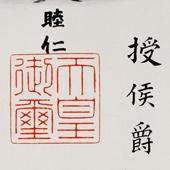 授侯爵
睦仁
天皇
御璽